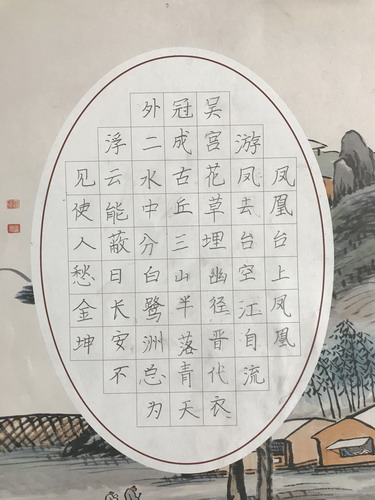 凤凰台上凤凰
游凤去台空江自流
吴宫花草埋幽径晋代衣
冠成古丘三山半落青天
外二水中分白鹭洲总为
浮云能蔽日长安不
见使人愁金坤